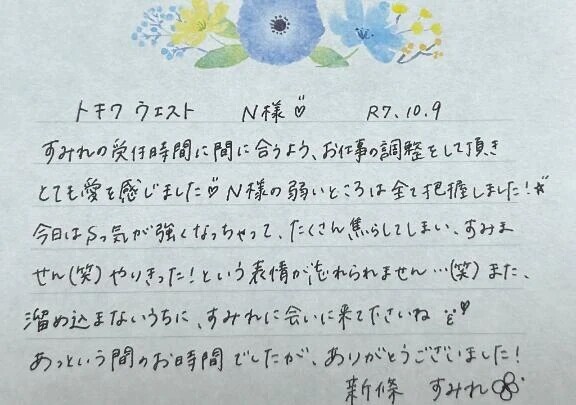 トキワ ウエスト N様 R7.10.9
すみれの受付時間に間に合うよう、お仕事の調整をして頂き
とても愛を感じました♡N様の弱いところは全て把握しました!☆
今日はSっ気が強くなっちゃって、たくさん焦らしてしまい、すみま
せん(笑)やりきった!という表情が忘れられません…(笑)また、
溜め込まないうちに、すみれに会いに来て下さいね
あっという間のお時間でしたが、ありがとうございました!
新條 すみれ